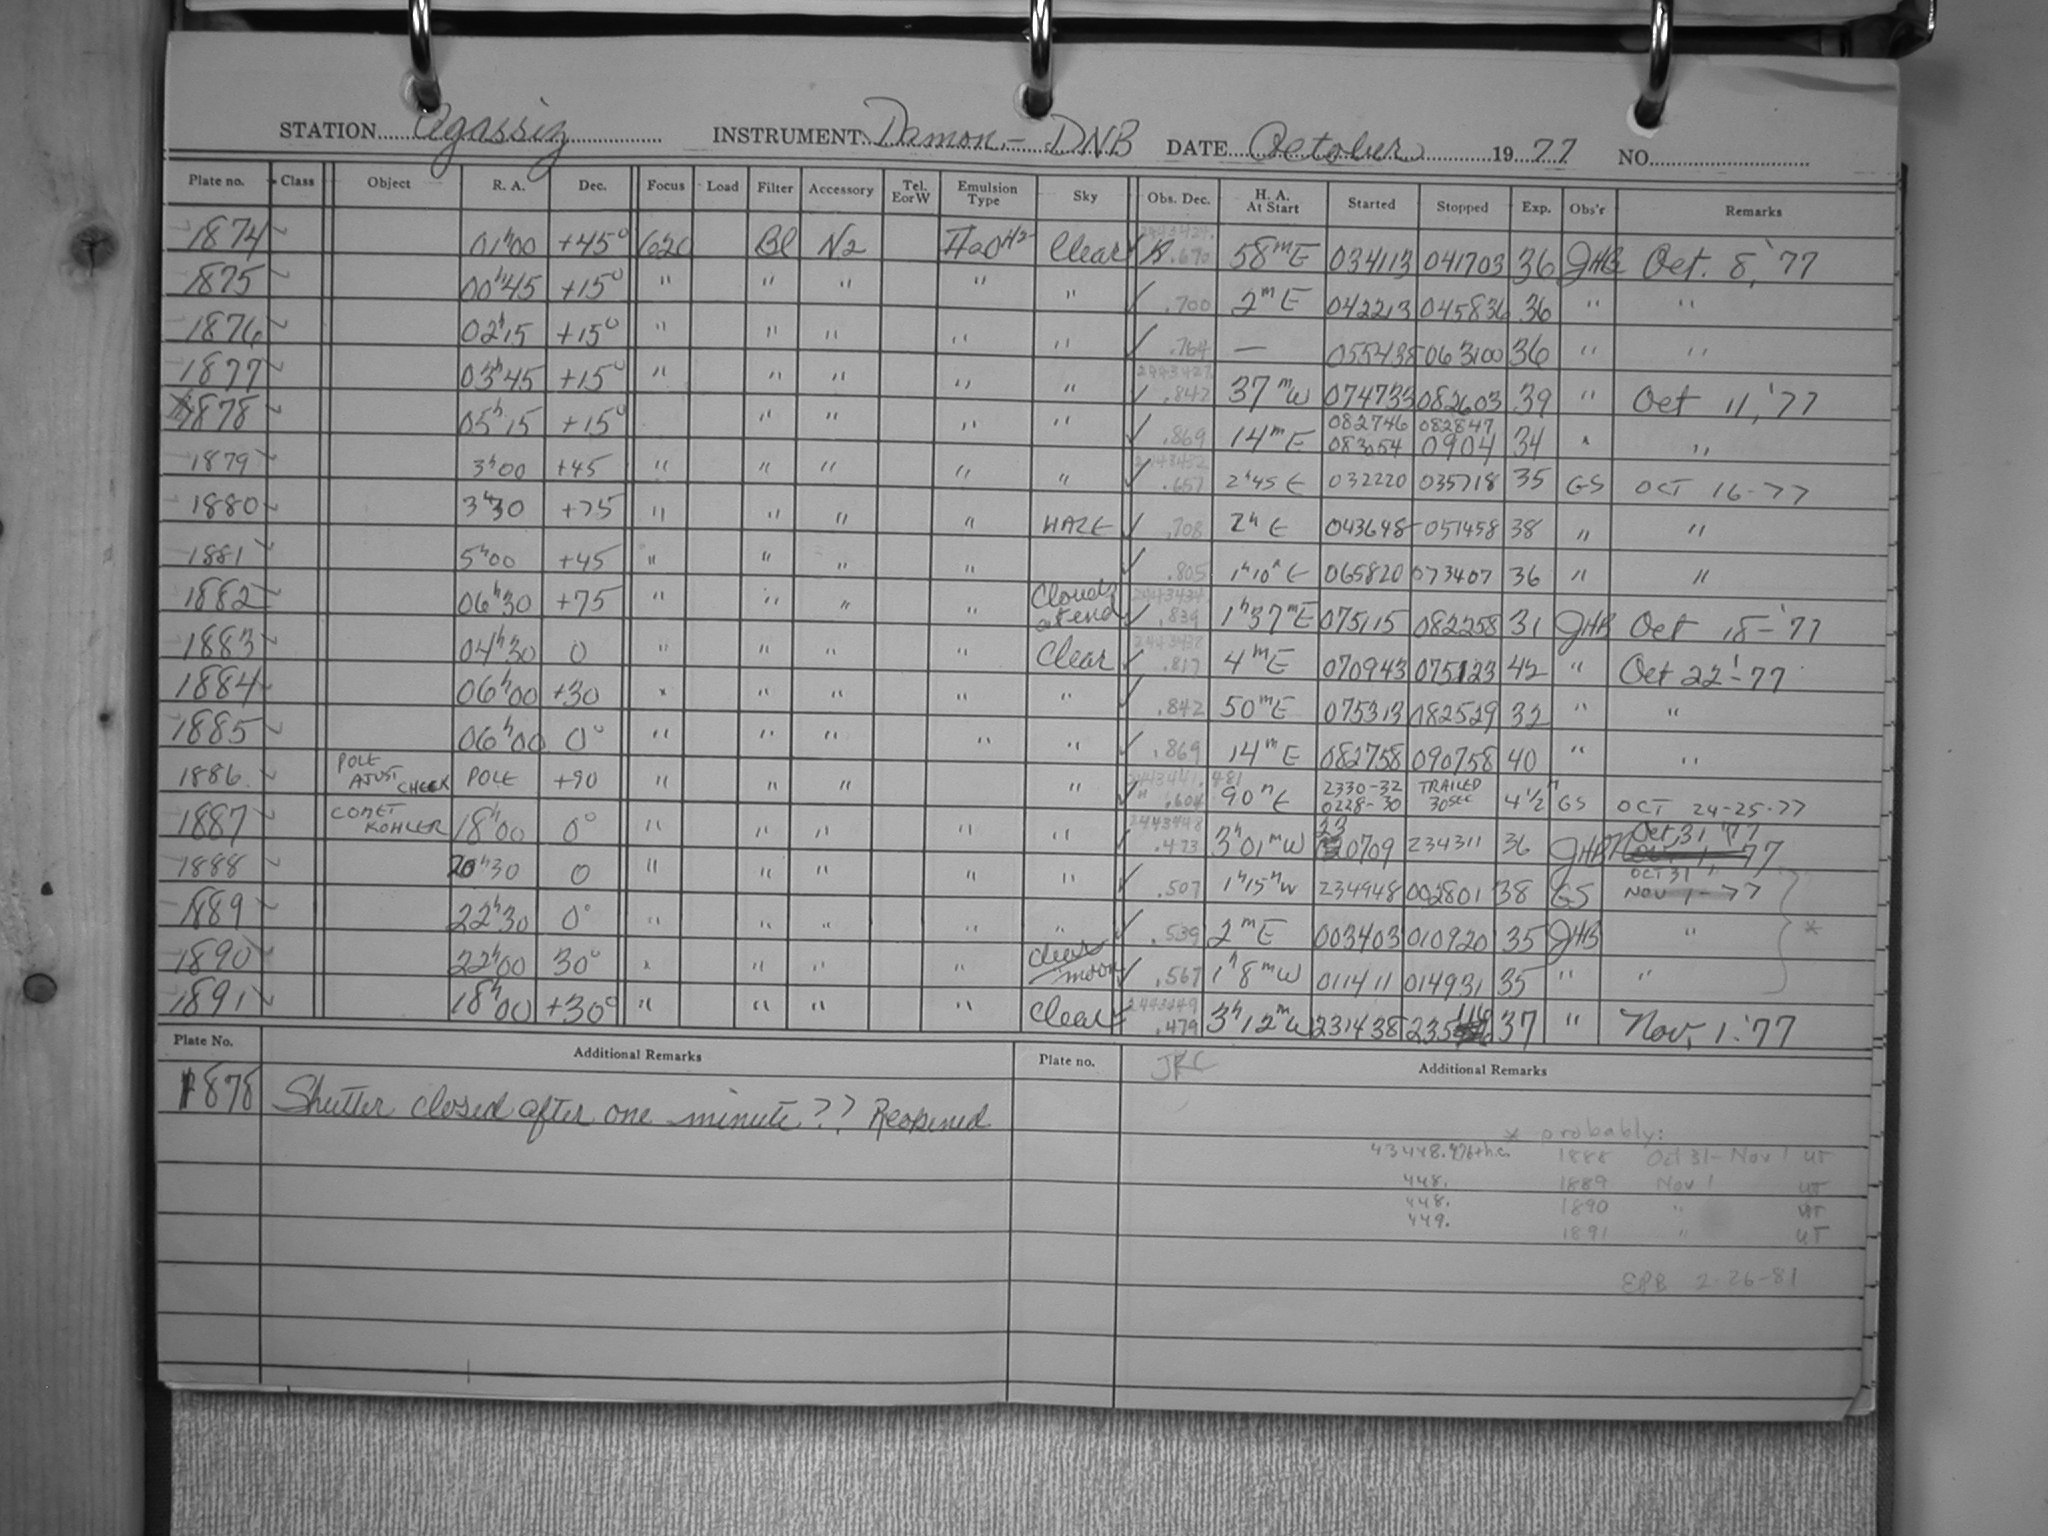 STATION Agassiz INSTRUMENT Damon - DNB DATE October 19 77 NO.
Plate no. Class Object R. A. Dec. Focus Load Filter Accessory Tel. E or W Emulsion Type Sky Obs. Dec. H. A. At Start Started Stopped Exp. Obs'r Remarks
1874 01h00 +45° 620 Bl N2 IIaO H2 Clear .670 58mE 034113 041703 36 JHB Oct. 8, '77
1875 00h45 +15° " " " " " .700 2mE 042213 045836 36 " "
1876 02h15 +15° " " " " " .764 — 055438 063100 36 " "
1877 03h45 +15° " " " " " 2443427 .842 37mW 074733 082603 39 " Oct 11, '77
1878 05h15 +15° " " " " .869 14mE 082746 082847 083054 0904 34 " "
1879 3h00 +45 " " " " " 2443432 .657 2h45 E 032220 035718 35 GS OCT 16-77
1880 3h30 +75 " " " " HAZE .708 2h E 043648 051458 38 " "
1881 5h00 +45 " " " " .805 1h10m E 065820 073407 36 " "
1882 06h30 +75 " " " " Clouds at end 2443434 .839 1h37mE 075115 082258 31 JHB Oct 18-'77
1883 04h30 0 " " " " Clear 2443438 .817 4mE 070943 075123 42 " Oct 22-'77
1884 06h00 +30 " " " " " .842 50mE 075313 082529 32 " "
1885 06h00 0° " " " " " .869 14mE 082758 090758 40 " "
1886 POLE AJUST CHECK POLE +90 " " " " 2443441.481 " .604 90mE 2330-32 0228-30 TRAILED 30SEC 4 1/2m GS OCT 24-25-77
1887 COMET KOHLER 18h00 0° " " " " " 2443448 .473 3h01mW 230709 234311 36 JHB Oct, 31 '77
1888 20h30 0 " " " " " .507 1h15mW 234948 002801 38 GS OCT 31 " NOV 1-77
1889 22h30 0° " " " " " .539 2mE 003403 010920 35 JHB " *
1890 22h00 30° " " " " clear moon .567 1h8mW 011411 014931 35 " "
1891 18h00 +30° " " " " Clear 2443449 .479 3h12mW 231438 235116 37 " Nov, 1.'77
Plate No. Additional Remarks Plate no. JRC Additional Remarks
1878 Shutter closed after one minute?? Reopened
* probably:
1888 Oct 31-Nov 1 UT
448. 1889 Nov 1 UT
448. 1890 " UT
449. 1891 " UT
2-26-81